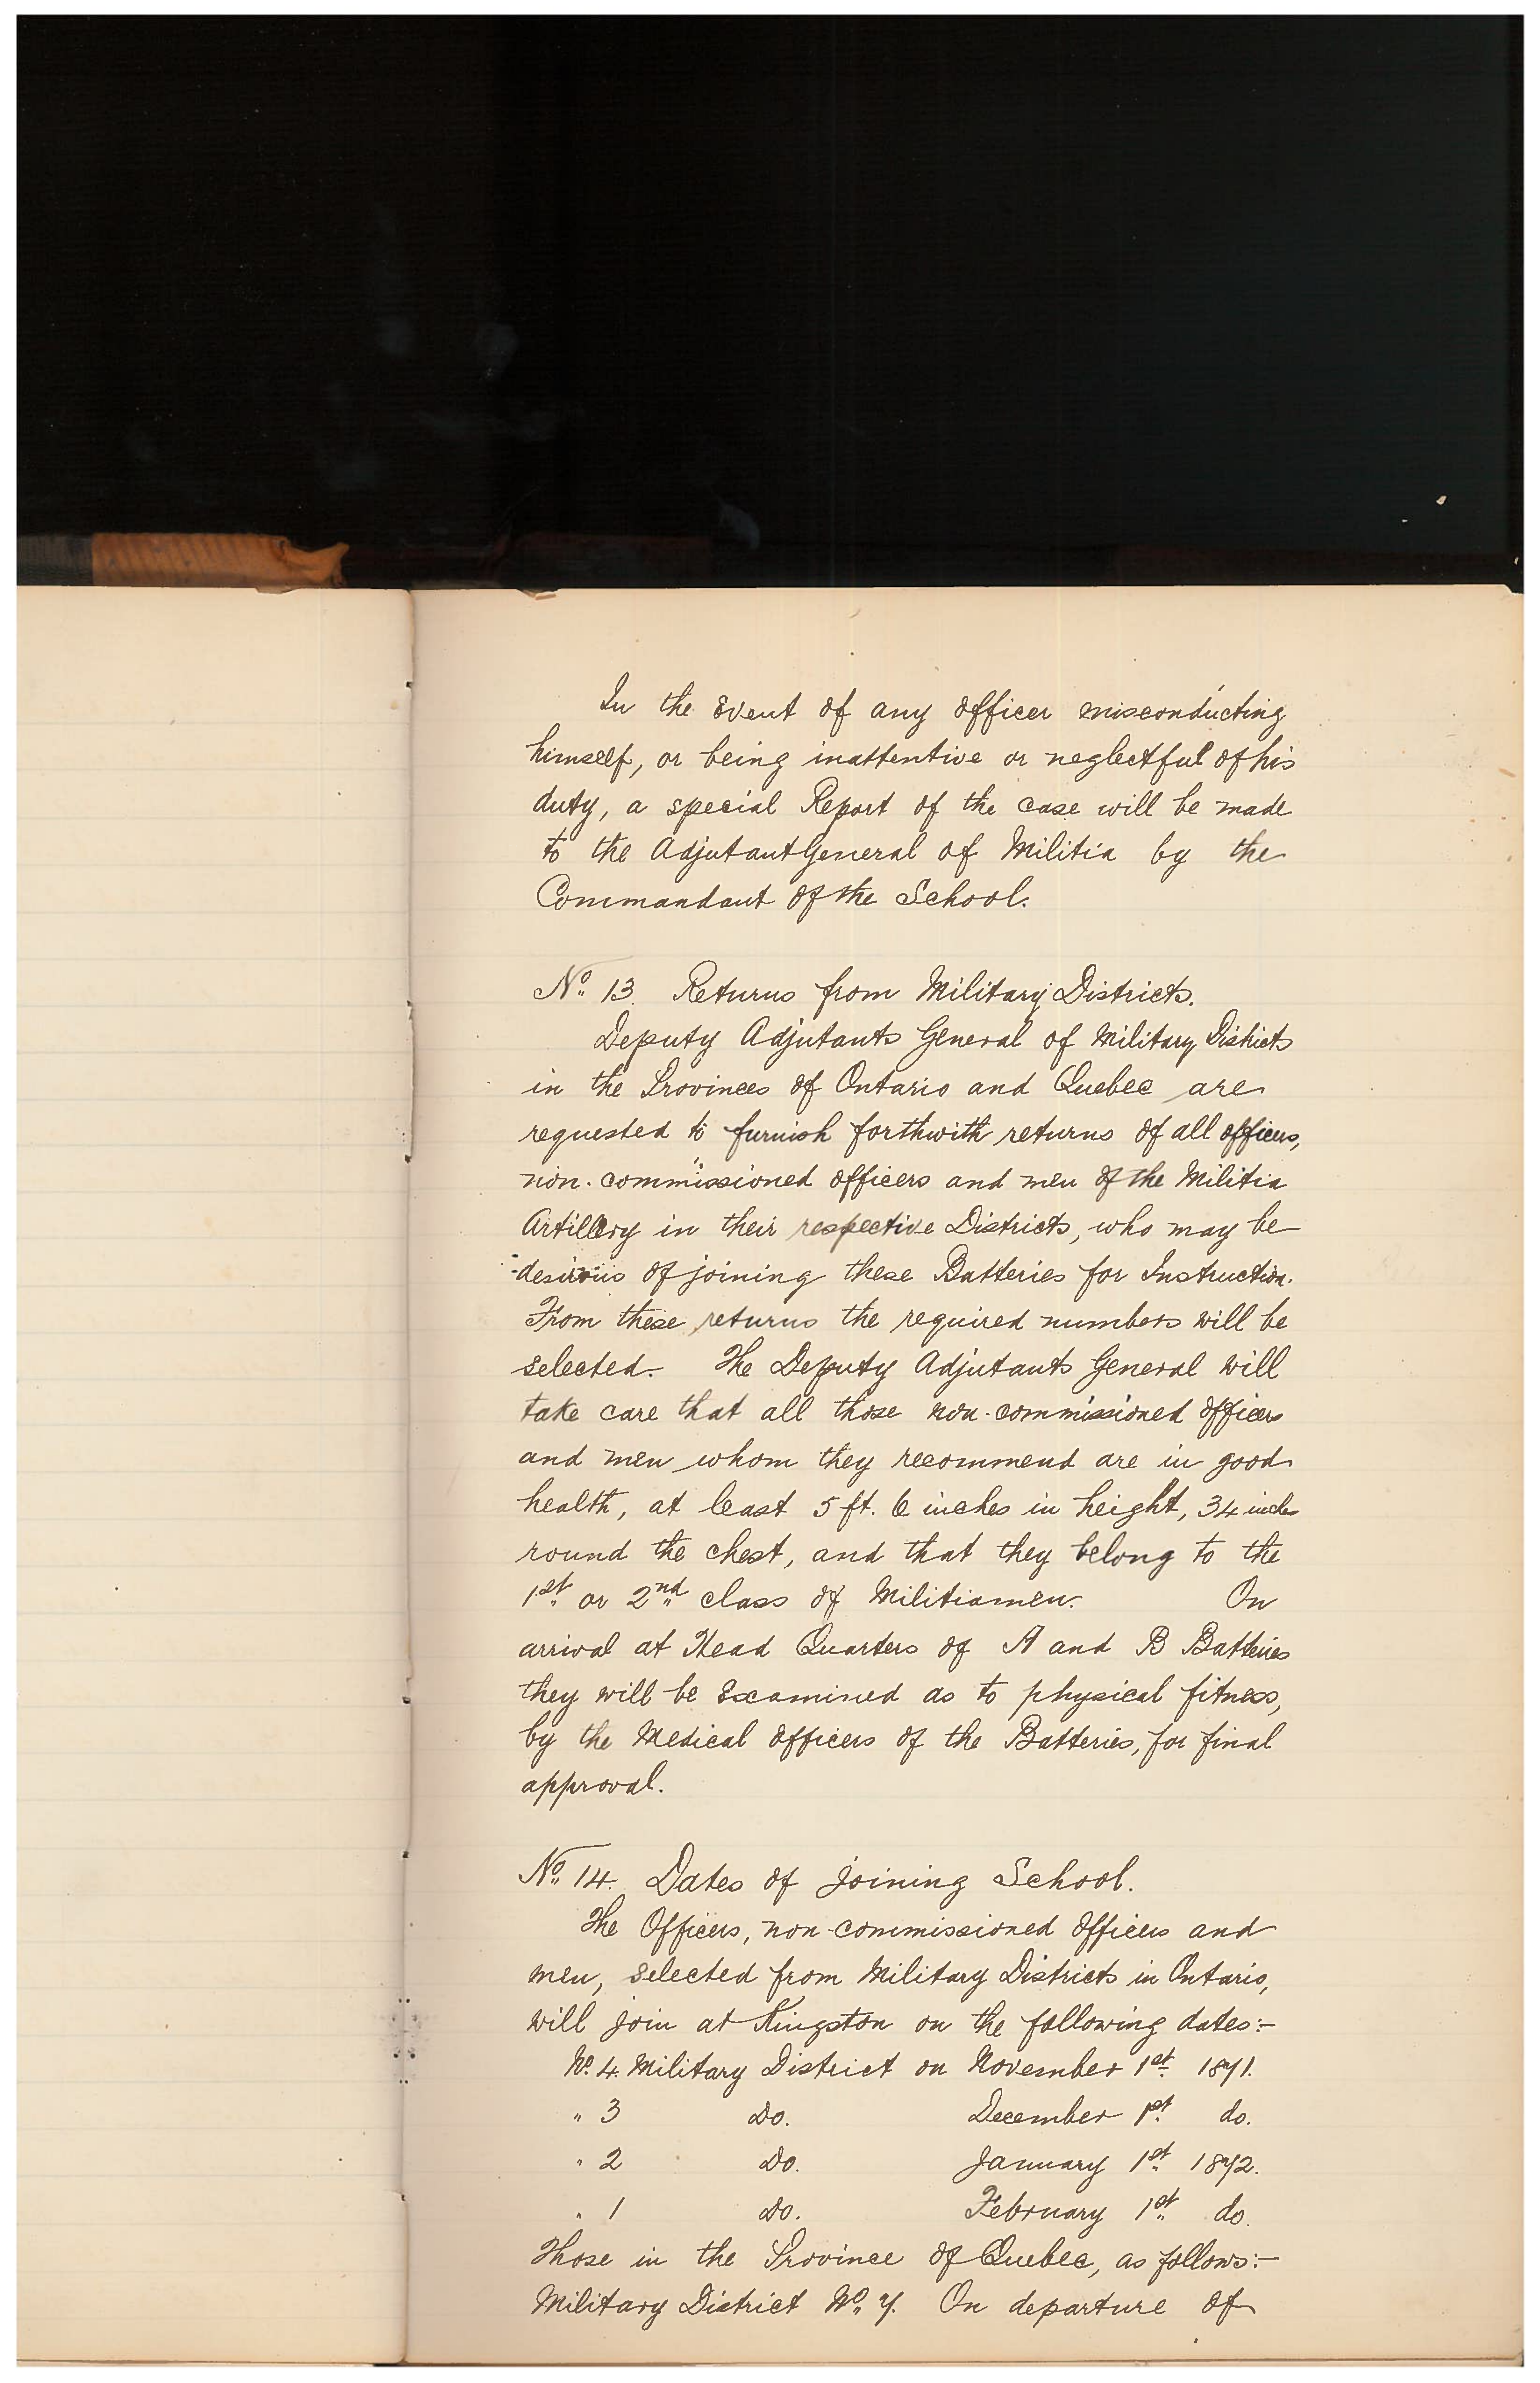 In the Event of any officer misconducting
himself, or being inattentive or neglectful of his
duty, a special Report of the case will be made
to the Adjutant General of Militia by the
Commandant of the School.
No. 13. Returns from Military Districts.
Deputy Adjutants General of Military Districts
in the Provinces of Ontario and Quebec are
requested to furnish forthwith returns of all officers,
non-commissioned officers and men of the Militia
Artillery in their respective Districts, who may be
desirous of joining these Batteries for Instruction.
From these returns the required numbers will be
selected. The Deputy Adjutants General will
take care that all those non-commissioned officers
and men whom they recommend are in good
health, at least 5 ft. 6 inches in height, 34 inches
round the chest, and that they belong to the
1st. or 2nd. class of Militiamen. On
arrival at Head Quarters of A and B Batteries
they will be Examined as to physical fitness,
by the Medical Officers of the Batteries, for final
approval.
No. 14. Dates of joining School.
The Officers, non-commissioned officers and
men, selected from Military Districts in Ontario,
will join at Kingston on the following dates:-
No. 4. Military District on November 1st. 1871.
" 3 Do. December 1st. do.
" 2 Do. January 1st. 1872.
" 1 Do. February 1st. do.
Those in the Province of Quebec, as follows:-
Military District No. 7. On departure of